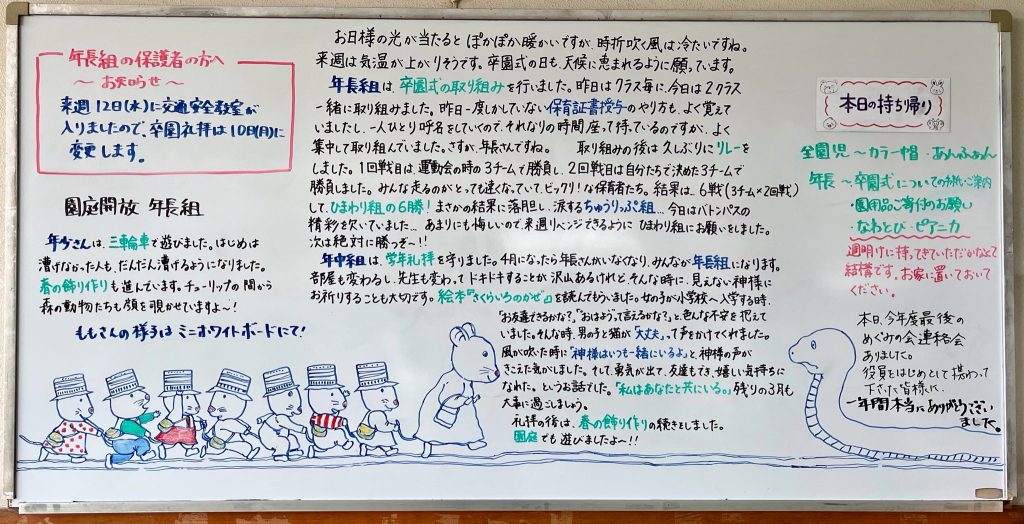 年長組の保護者の方へ
～お知らせ～
来週12日(水)に交通安全教室が
入りましたので、卒園礼拝は10日(月)に
変更します。
園庭開放 年長組
年少さんは、三輪車で遊びました。はじめは
漕げなかった人も、だんだん漕げるようになりました。
春の飾り作りも進んでいます。チューリップの間から
森の動物たちも顔を覗かせていますよ～!
ももさんの様子はミニホワイトボードにて!
お日様の光が当たると ぽかぽか暖かいですが、時折吹く風は冷たいですね。
来週は気温が上がりそうです。卒園式の日も、天候に恵まれるように願っています。
年長組は、卒園式の取り組みを行いました。昨日はクラス毎に、今日は2クラス
一緒に取り組みました。昨日一度しかしていない保育証書授与のやり方も、よく覚えて
いましたし、一人ひとり呼名をしていくので、それなりの時間座って待っているのですが、よく
集中して取り組んでいました。さすが、年長さんですね。 取り組みの後は久しぶりにリレーを
しました。1回戦目は、運動会の時の3チームで勝負し、2回戦目は自分たちで決めた3チームで
勝負しました。みんな走るのがとっても速くなっていて、ビックリ!な保育者たち。結果は、6戦(3チーム×2回戦)
して、ひまわり組の6勝! まさかの結果に落胆し、涙するちゅうりっぷ組…今日はバトンパスの
精彩を欠いていました… あまりにも悔しいので、来週リベンジできるように ひまわり組にお願いをしました。
次は絶対に勝っぞ～!!
年中組は、学年礼拝を守りました。4月になったら年長さんがいなくなり、みんなが年長組になります。
部屋も変わるし、先生も変わってドキドキすることが沢山あるけれど、そんな時に、見えない神様に
お祈りすることも大切です。絵本『さくらいろのかぜ』を読んでもらいました。女の子が小学校へ入学する時、
"お友達できるかな?""おはようって言えるかな?"と、色んな不安を抱えて
いました。そんな時、男の子と猫が「大丈夫」って声をかけてくれました。
風が吹いた時に「神様はいつも一緒にいるよ」と、神様の声が
きこえた気がしました。そして、勇気が出て、友達もでき、嬉しい気持ちに
なれた、というお話でした。「私はあなたと共にいる。」残りの3月も
大事に過ごしましょう。
礼拝の後は、春の飾り作りの続きをしました。
園庭でも遊びましたよ～!!
本日の持ち帰り
全園児～カラー帽・あんふぁん
年長～・卒園式についてのお祝いご案内
・園用品ご寄付のお願い
・なわとび・ピアニカ
週明けに持ってきていただかなくて
結構です。お家に置いておいて
ください。
本日、今年度最後の
めぐみの会連絡会
ありました。
役員をはじめとして携わって
下さった皆様に、
一年間本当にありがとうござい
ました。